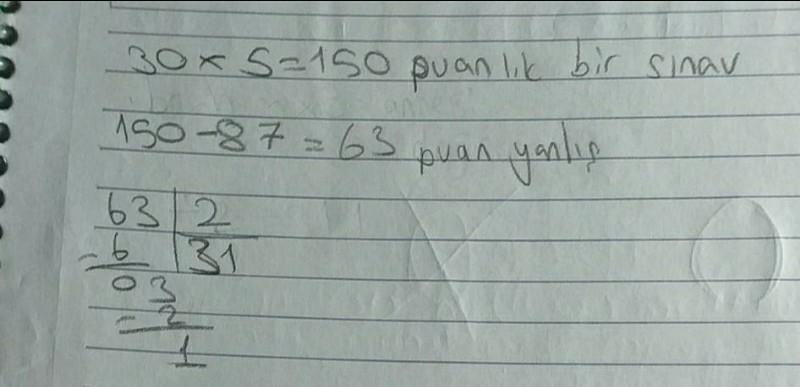 30 x 5 = 150 puanlık bir sınav
150 - 87 = 63 puan yanlış
63 | 2
- 6 | 31
03
- 2
1